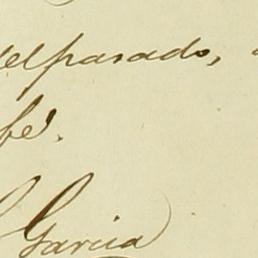 del pasado,
fé.
Garcia